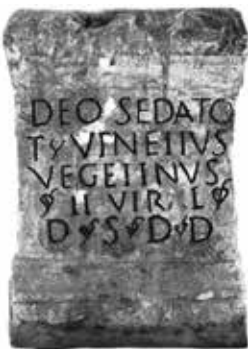 DEO SEDATO
T❦VINEIIVS
VEGETINVS
❦ II VIR❦L❦
D❦S❦D❦D